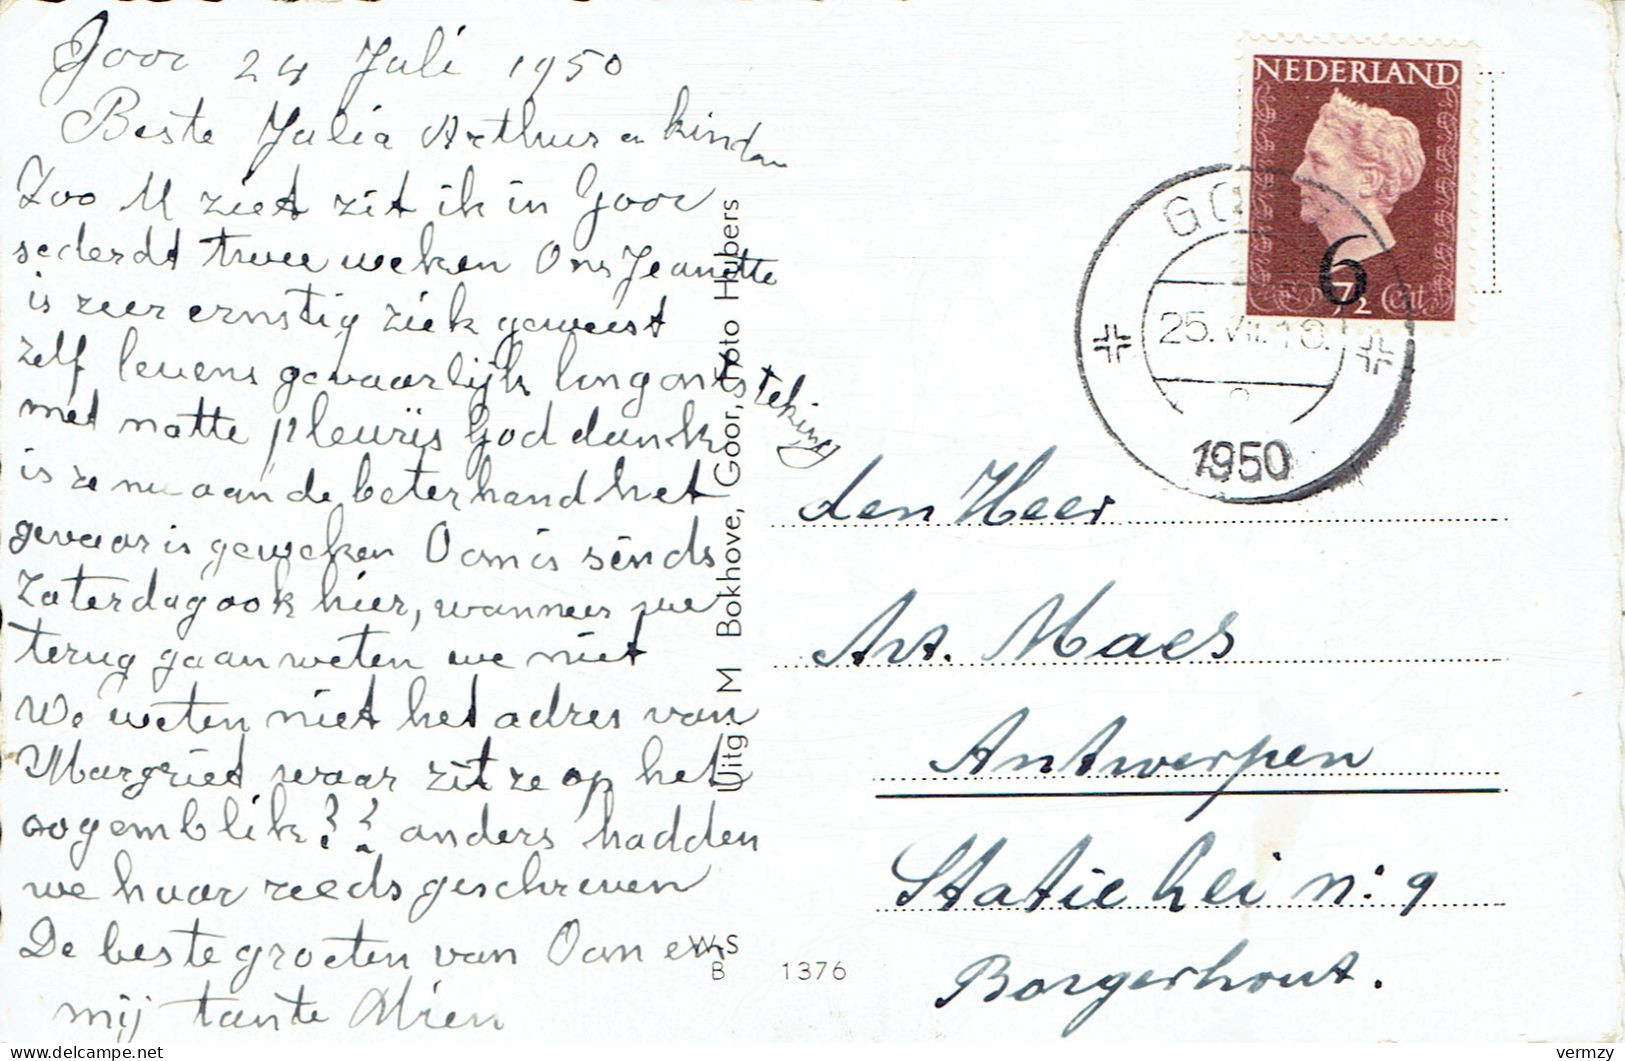 Goor 24 Juli 1950
Beste Julia Arthur en kinderen
Zoo U ziet zit ik in Goor
sederdt twee weken Ons Jeanette
is zeer ernstig ziek geweest
zelf levens gevaarlijk longontsteking
met natte pleuris God dank
is ze nu aan de beterhand het
gevaar is geweken Oom is sinds
Zaterdag ook hier, wanneer we
terug gaan weten we niet
We weten niet het adres van
Margriet waar zit ze op het
oogemblik?? anders hadden
we haar reeds geschreven
De beste groeten van Oom en
mij tante Mien
Uitg. M Bokhove, Goor, Foto Hubers
WS
B 1376
NEDERLAND
6
7½ Cent
GOOR
25.VII.10.
1950
den Heer
Art. Maes
Antwerpen
Statie lei n: 9
Borgerhout.
vermzy